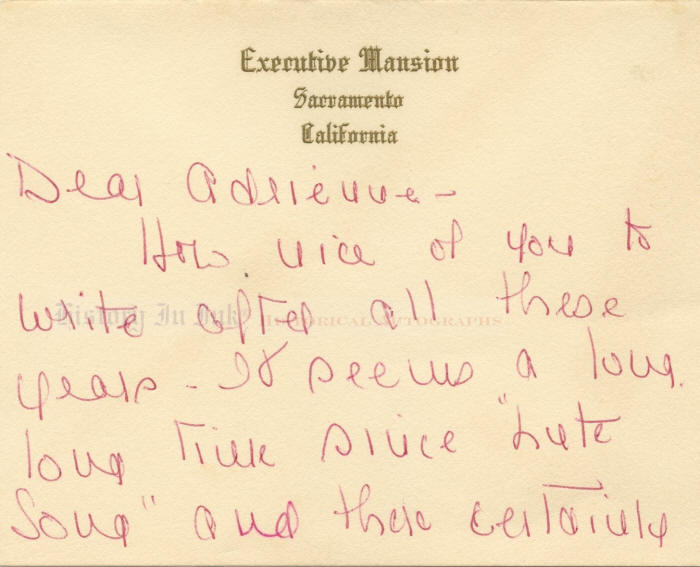 Executive Mansion
Sacramento
California
Dear Adrienne -
How nice of you to
write after all these
History In Ink® Historical Autographs
years - It seems a long,
long time since "Lute
Song" and there certainly